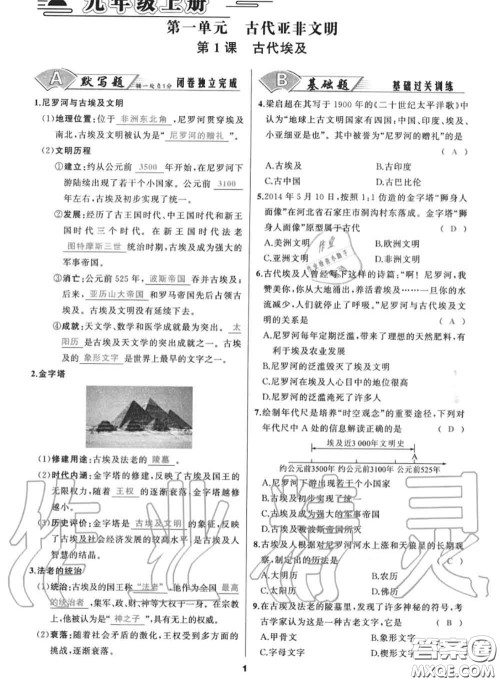 九年级上册
第一单元 古代亚非文明
第1课 古代埃及
A 默写题 闭卷独立完成
1.尼罗河与古埃及文明
(1)地理位置:位于 非洲东北角 ,尼罗河贯穿埃及
南北,古埃及文明被认为是“ 尼罗河的赠礼 ”。
(2)文明历程
①建立:约从公元前 3500 年开始,在尼罗河下
游陆续出现了若干个小国家。公元前 3100
年左右,古埃及初步实现了统一。
②发展:经历了古王国时代、中王国时代和新王
国时代三个时代。在新王国时代法老
图特摩斯三世 统治时期,古埃及成为强大的
军事帝国。
③消亡:公元前525年, 波斯帝国 吞并古埃及;
后来, 亚历山大帝国 和罗马帝国先后占领古
埃及。古埃及文明没有延续下去。
④成就:天文学、数学和医学成就最为突出。 太
阳历 是古埃及天文学的突出成就之一。古埃
及的 象形文字 是世界上最早的文字之一。
2.金字塔
(1)修建用途:古埃及法老的 陵墓 。
(2)时代内涵:金字塔的修建,反映了古埃及国王的
无限权力,随着 王权 的逐渐衰落,金字塔越修
越小。
(3)历史评价:金字塔是 古埃及文明 的象征,反映
了古埃及社会经济发展的较高水平,是古埃及人
智慧的结晶。
3.法老的统治
(1)统治:古埃及的国王称“ 法老 ”,他作为全国 最高
的统治者 ,集军、政、财、神等大权于一身。在宗教
上,他被认为是 神之子 ,具有无上的权威。
(2)衰落:随着社会矛盾的激化,王权受到多方面的
挑战,逐渐衰落。
B 基础题 基础过关训练
4.梁启超在其写于1900年的《二十世纪太平洋歌》中
认为“地球上古文明国家有四:中国、印度、埃及、
小亚细亚是也”。其中被誉为“尼罗河的赠礼”的是
( A )
A.古埃及 B.古印度
C.古中国 D.古巴比伦
5.2014年5月10日,按照1:1仿造的金字塔“狮身人
面像”在河北省石家庄市郊沟村东落成。金字塔“狮
身人面像”原型属于古代 ( D )
A.美洲文明 B.欧洲文明
C.亚洲文明 D.非洲文明
6.古代埃及人曾经写下这样的诗篇:“啊!尼罗河,我
赞美你,你从大地涌出,养活着埃及……一旦你的水
流减少,人们就停止了呼吸。”尼罗河与古代埃及文
明的关系是 ( A )
A.尼罗河每年定期泛滥,带来了理想的天然肥料,有
利于埃及农业发展
B.尼罗河的泛滥毁灭了埃及文明
C.尼罗河在埃及人心目中的地位很高
D.尼罗河的泛滥淹死了许多人
7.绘制年代尺是培养“时空观念”的重要途径,下列对
年代尺中A处的信息解读正确的是 ( D )
埃及近3000年文明史
约公元前3500年 约公元前3100年 公元前525年
A.尼罗河下游出现若干个小国家
B.古埃及初步实现统一
C.古埃及成为强大的军事帝国
D.古埃及被波斯帝国所灭
8.古埃及人根据对尼罗河河水上涨和天狼星的长期观
察,制定出的历法是 ( B )
A.大明历 B.太阳历
C.农历 D.佛历
9.在古埃及法老的陵墓里,发现了许多神秘的符号,考
古学家认为这是一种古老文字,它是 ( B )
A.甲骨文 B.象形文字
C.字母文字 D.楔形文字
1
作业精灵